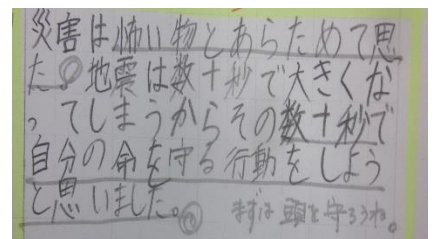 災害は怖い物とあらためて思
た。地震は数十秒で大きくな
ってしまうからその数十秒で
自分の命を守る行動をしよう
と思いました。
まずは頭を守ろうね。